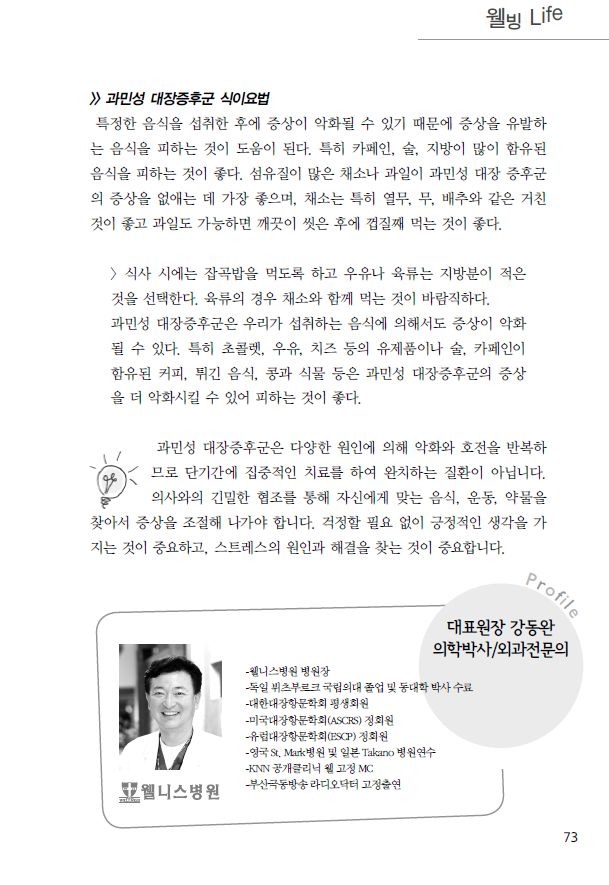 웰빙 Life
>> 과민성 대장증후군 식이요법
특정한 음식을 섭취한 후에 증상이 악화될 수 있기 때문에 증상을 유발하
는 음식을 피하는 것이 도움이 된다. 특히 카페인, 술, 지방이 많이 함유된
음식을 피하는 것이 좋다. 섬유질이 많은 채소나 과일이 과민성 대장 증후군
의 증상을 없애는 데 가장 좋으며, 채소는 특히 열무, 무, 배추와 같은 거친
것이 좋고 과일도 가능하면 깨끗이 씻은 후에 껍질째 먹는 것이 좋다.
> 식사 시에는 잡곡밥을 먹도록 하고 우유나 육류는 지방분이 적은
것을 선택한다. 육류의 경우 채소와 함께 먹는 것이 바람직하다.
과민성 대장증후군은 우리가 섭취하는 음식에 의해서도 증상이 악화
될 수 있다. 특히 초콜렛, 우유, 치즈 등의 유제품이나 술, 카페인이
함유된 커피, 튀긴 음식, 콩과 식물 등은 과민성 대장증후군의 증상
을 더 악화시킬 수 있어 피하는 것이 좋다.
과민성 대장증후군은 다양한 원인에 의해 악화와 호전을 반복하
므로 단기간에 집중적인 치료를 하여 완치하는 질환이 아닙니다.
의사와의 긴밀한 협조를 통해 자신에게 맞는 음식, 운동, 약물을
찾아서 증상을 조절해 나가야 합니다. 걱정할 필요 없이 긍정적인 생각을 가
지는 것이 중요하고, 스트레스의 원인과 해결을 찾는 것이 중요합니다.
Profile
대표원장 강동완
의학박사/외과전문의
-웰니스병원 병원장
-독일 뷔츠부르크 국립의대 졸업 및 동대학 박사 수료
-대한대장항문학회 평생회원
-미국대장항문학회(ASCRS) 정회원
-유럽대장항문학회(ESCP) 정회원
-영국 St. Mark병원 및 일본 Takano 병원연수
-KNN 공개클리닉 웰 고정 MC
-부산극동방송 라디오닥터 고정출연
웰니스병원
73